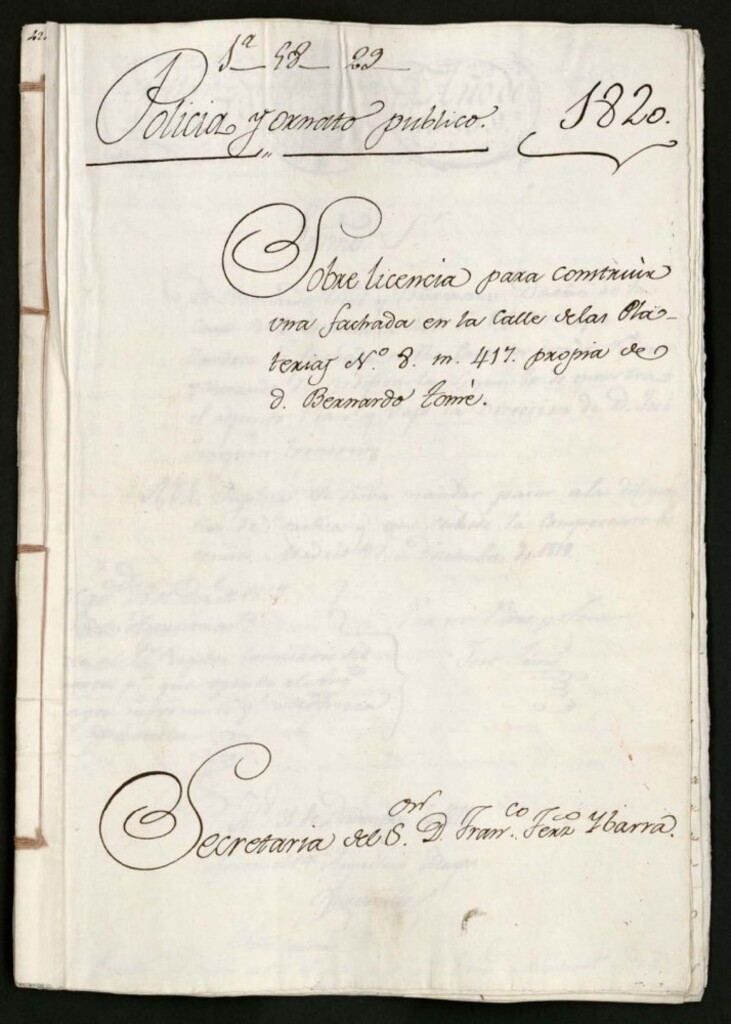 42.
1ª 58 29
Policia y ornato publico. 1820.
Sobre licencia para construir
una fachada en la Calle delas Pla-
terias N.º 8. m. 417. propia de
d. Bernardo tomè.
Secretaria del S.or D. Fran.co Ferz Ybarra.